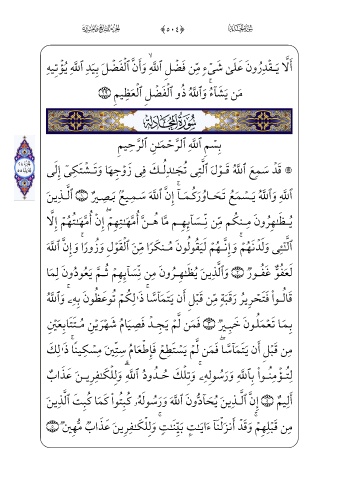 ﴿٥٠٤﴾
أَلَّا يَقْدِرُونَ عَلَىٰ شَىْءٍ مِّن فَضْلِ اللَّهِ ۙ وَأَنَّ الْفَضْلَ بِيَدِ اللَّهِ يُؤْتِيهِ
مَن يَشَآءُ ۚ وَاللَّهُ ذُو الْفَضْلِ الْعَظِيمِ
سُورَةُ الْمُجَادِلَةِ
بِسْمِ اللَّهِ الرَّحْمَٰنِ الرَّحِيمِ
۞ قَدْ سَمِعَ اللَّهُ قَوْلَ الَّتِى تُجَٰدِلُكَ فِى زَوْجِهَا وَتَشْتَكِىٓ إِلَى
اللَّهِ وَاللَّهُ يَسْمَعُ تَحَاوُرَكُمَآ ۚ إِنَّ اللَّهَ سَمِيعٌۢ بَصِيرٌ ۝ الَّذِينَ
يُظَٰهِرُونَ مِنكُم مِّن نِّسَآئِهِم مَّا هُنَّ أُمَّهَٰتِهِمْ ۖ إِنْ أُمَّهَٰتُهُمْ إِلَّا
الَّٰٓـِٔى وَلَدْنَهُمْ ۚ وَإِنَّهُمْ لَيَقُولُونَ مُنكَرًا مِّنَ الْقَوْلِ وَزُورًا ۚ وَإِنَّ اللَّهَ
لَعَفُوٌّ غَفُورٌ ۝ وَالَّذِينَ يُظَٰهِرُونَ مِن نِّسَآئِهِمْ ثُمَّ يَعُودُونَ لِمَا
قَالُوا۟ فَتَحْرِيرُ رَقَبَةٍ مِّن قَبْلِ أَن يَتَمَآسَّا ۚ ذَٰلِكُمْ تُوعَظُونَ بِهِۦ ۚ وَاللَّهُ
بِمَا تَعْمَلُونَ خَبِيرٌ ۝ فَمَن لَّمْ يَجِدْ فَصِيَامُ شَهْرَيْنِ مُتَتَابِعَيْنِ
مِن قَبْلِ أَن يَتَمَآسَّا ۖ فَمَن لَّمْ يَسْتَطِعْ فَإِطْعَامُ سِتِّينَ مِسْكِينًا ۚ ذَٰلِكَ
لِتُؤْمِنُوا۟ بِاللَّهِ وَرَسُولِهِۦ ۚ وَتِلْكَ حُدُودُ اللَّهِ ۗ وَلِلْكَٰفِرِينَ عَذَابٌ
أَلِيمٌ ۝ إِنَّ الَّذِينَ يُحَآدُّونَ اللَّهَ وَرَسُولَهُۥ كُبِتُوا۟ كَمَا كُبِتَ الَّذِينَ
مِن قَبْلِهِمْ ۚ وَقَدْ أَنزَلْنَآ ءَايَٰتٍۭ بَيِّنَٰتٍ ۚ وَلِلْكَٰفِرِينَ عَذَابٌ مُّهِينٌ